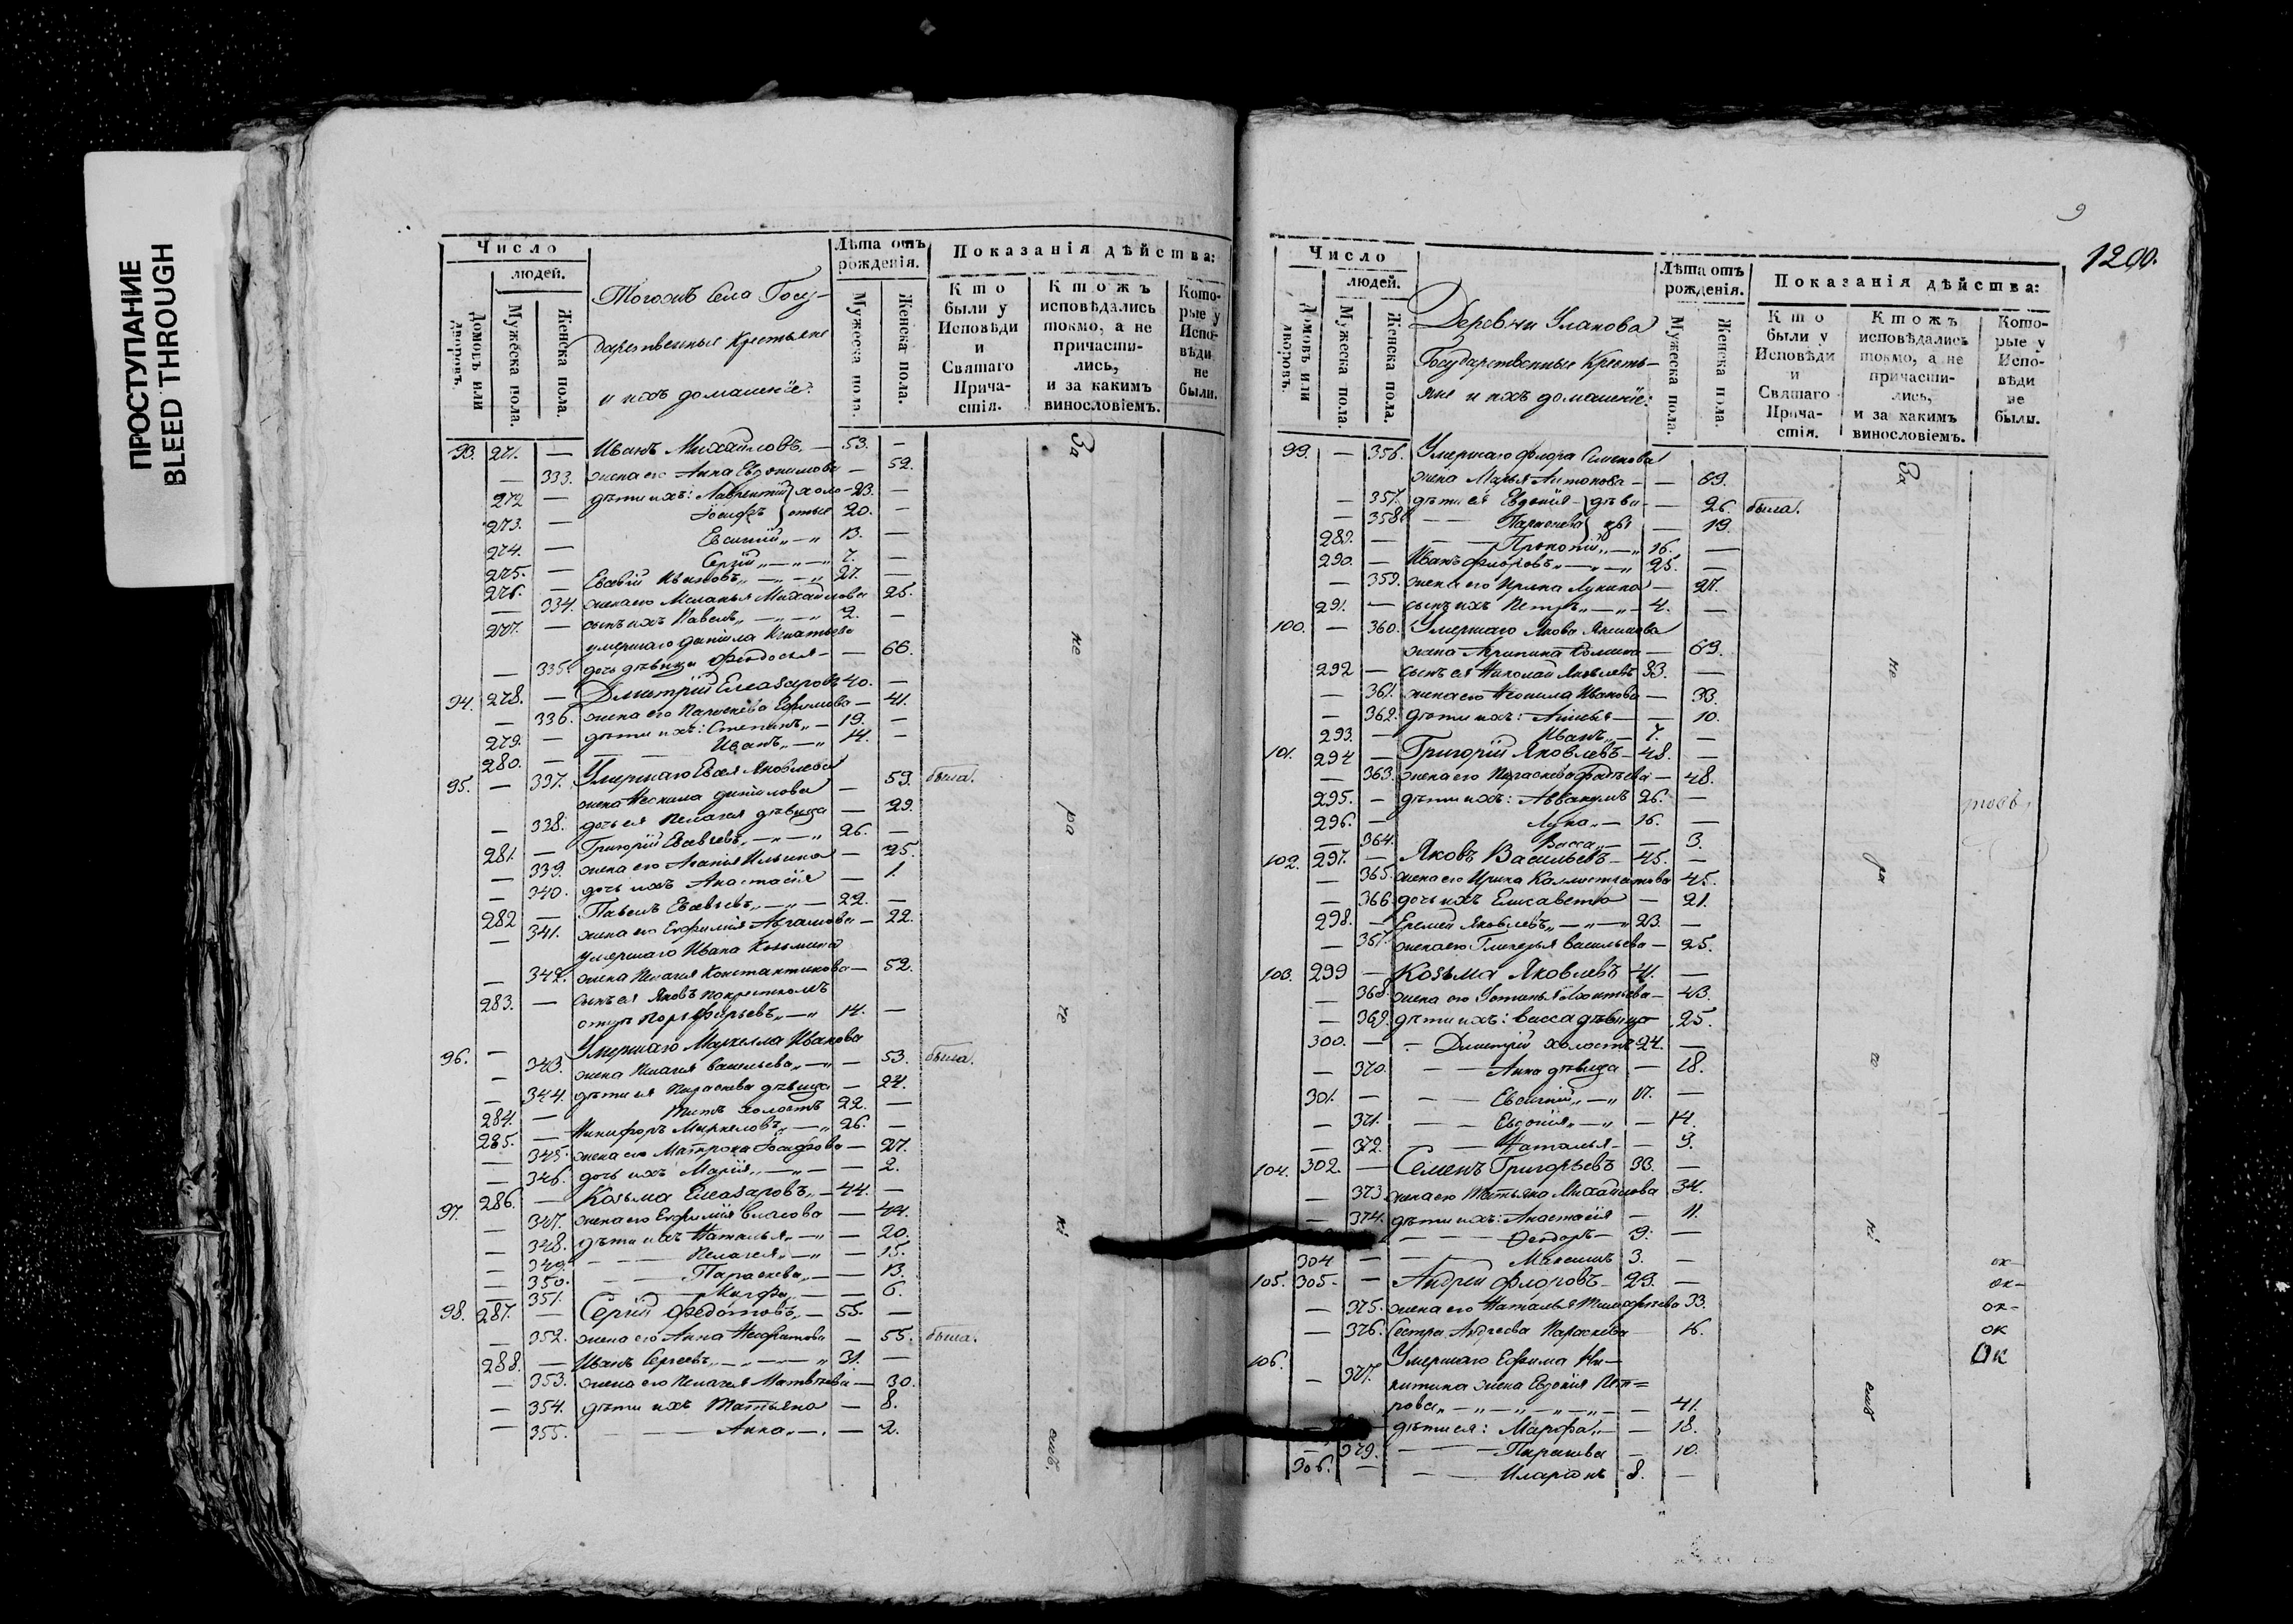 ПРОСТУПАНИЕ
BLEED THROUGH
Число
людей.
Домовъ или дворовъ.
Мужеска пола.
Женска пола.
Тогожъ Села Госу-
дарственныя Крестьяне
и ихъ домашнїе:
Лѣта отъ рожденія.
Мужеска пола.
Женска пола.
Показанія дѣйства:
Кто были у Исповѣди и Святаго Прича-стія.
Ктожъ исповѣдались токмо, а не причасти-лись, и за какимъ винословіемъ.
Кото-рые у Испо-вѣди не были.
93. 271. — Иванъ Михайловъ — 53. —
— 333. жена его Анна Евдокимова — 52.
272 — дѣти ихъ: Лаврентій } холо- 23. —
273. — Іосифъ } стые 20. —
274. — Евсигній „ — „ 13. —
275. — Сергій „ — „ — „ 7. —
276. — Евсевій Ивановъ „ — „ — „ 27. —
— 334. жена его Меланья Михайлова 25.
277. — сынъ ихъ Павелъ „ — „ — „ 2. —
умершаго Данїила Игнатьева
— 335. дочь дѣвица Феодосья — — 66.
94. 278. — Дмитрій Елеазаровъ 40. —
— 336. жена его Параскева Ефимова — 41.
279. — дѣти ихъ: Степанъ „ — 19. —
280. — Иванъ „ — „ 14. —
95. — 337. Умершаго Евсея Яковлева
жена Неонила Данїилова — 59. была.
— 338. дочь ея Пелагея дѣвица — 29.
281. — Григорій Евсевьевъ „ — „ — „ 26. —
— 339. жена его Агапія Ильина — 25.
— 340. дочь ихъ Анастасїя — 1.
282 — Павелъ Евсевьевъ „ — „ — 22. —
— 341. жена его Евфимія Аврамова — 22.
умершаго Ивана Козьмина
— 342. жена Пелагея Константинова — 52.
283. — сынъ ея Яковъ по крестномъ
отцѣ Порфирьевъ „ — „ 14. —
96. — 343. Умершаго Маркелла Иванова
— жена Пелагея Васильева „ — „ — 53. была.
— 344. дѣти ея Параскева дѣвица — 24.
284. — Титъ холостъ 22. —
285. — Никифоръ Маркеловъ „ — „ 26. —
— 345. жена его Матрона Іосифова — 27.
— 346. дочь ихъ Марїя „ — „ — — 2.
97. 286. — Козьма Елеазаровъ „ — 44. —
— 347. жена его Евфимія Власова — 44.
— 348. дѣти ихъ Наталья „ — „ — 20.
— 349. Пелагея „ — „ — 15.
— 350. Параскева „ — — 13.
— 351. Марфа „ — — 6.
98. 287. — Сергій Федотовъ „ — 55. —
— 352. жена его Анна Неофитова — 55. была.
288. — Иванъ Сергеевъ „ — „ — „ 31. —
— 353. жена его Пелагея Матвѣева — 30.
— 354. дѣти ихъ Татьяна — 8.
— 355. — — Анна „ — . — 2.
За
не
ра
че
нї
емъ.
9
1200.
Число
людей.
Домовъ или дворовъ.
Мужеска пола.
Женска пола.
Деревни Уланова
Государственные Кресть-
яне и ихъ домашнїе:
Лѣта отъ рожденія.
Мужеска пола.
Женска пола.
Показанія дѣйства:
Кто были у Исповѣди и Святаго Прича-стія.
Ктожъ исповѣдались токмо, а не причасти-лись, и за какимъ винословіемъ.
Кото-рые у Испо-вѣди не были.
99. — 356. Умершаго Флора Семенова
жена Марья Антонова — — 69.
— 357. дѣти ея Евдокїя — } дѣви- — 26. была.
— 358. — — Параскева } цы — 19.
289. — — — Прокопій „ — „ 16. —
290. — Иванъ Флоровъ „ — „ — „ 25. —
— 359. жена его Ирина Лукина — 27.
291. — сынъ ихъ Петръ „ — „ — 4. —
100. — 360. Умершаго Якова
жена Агрипина Фомина — 69.
292 — сынъ ея Николай Яковлевъ 33. —
— 361. жена его Неонила Иванова — 33.
— 362. дѣти ихъ: — — 10.
293. — Иванъ „ — 7. —
101. 294 — Григорій Яковлевъ — 48. —
— 363. жена его Параскева Фадѣева — 48.
295. — дѣти ихъ: Аввакумъ 26. —
296. — Лука „ — 16. —
— 364. Васса „ — — 3.
102. 297. — Яковъ Васильевъ — 45. —
— 365. жена его Ирина Калистратова 45.
— 366 дочь ихъ Елисавета — 21.
298. — Еремей Яковлевъ „ — „ — 23. —
— 367. жена его Гликерья Васильева — 25.
103. 299 — Козьма Яковлевъ 41. —
— 368. жена его Устинья — 43.
— 369. дѣти ихъ: Васса дѣвица — 25.
300. — — Дмитрій холостъ 24. —
— 370. — — Анна дѣвица — 18.
301. — — — Евсигній „ — „ 17. —
— 371. — — Евдокїя „ — „ — 14.
— 372. — — Наталья — — 9.
104. 302. — Семенъ Григорьевъ 33. —
— 373 жена его Татьяна Михайлова 34.
— 374. дѣти ихъ: Анастасїя — 11.
— — — Феодоръ — 9. —
304 — — — Максимъ 3. —
105. 305. — Андрей Флоровъ — 29. —
— 375. жена его Наталья Тимофѣева 33.
— 376. Сестра Андреева Параскева — 16.
106. — 377. Умершаго Ефима Ни-
китина жена Евдокїя Пет=
рова „ — „ — „ — „ — „ — — 41.
— дѣти ея: Марфа „ — — 18.
— 379. — — Параскева — 10.
306. — — — Иларїонъ 8. —
За
не
ра
че
нї
емъ
ок-
ок-
ок-
ок
Ок